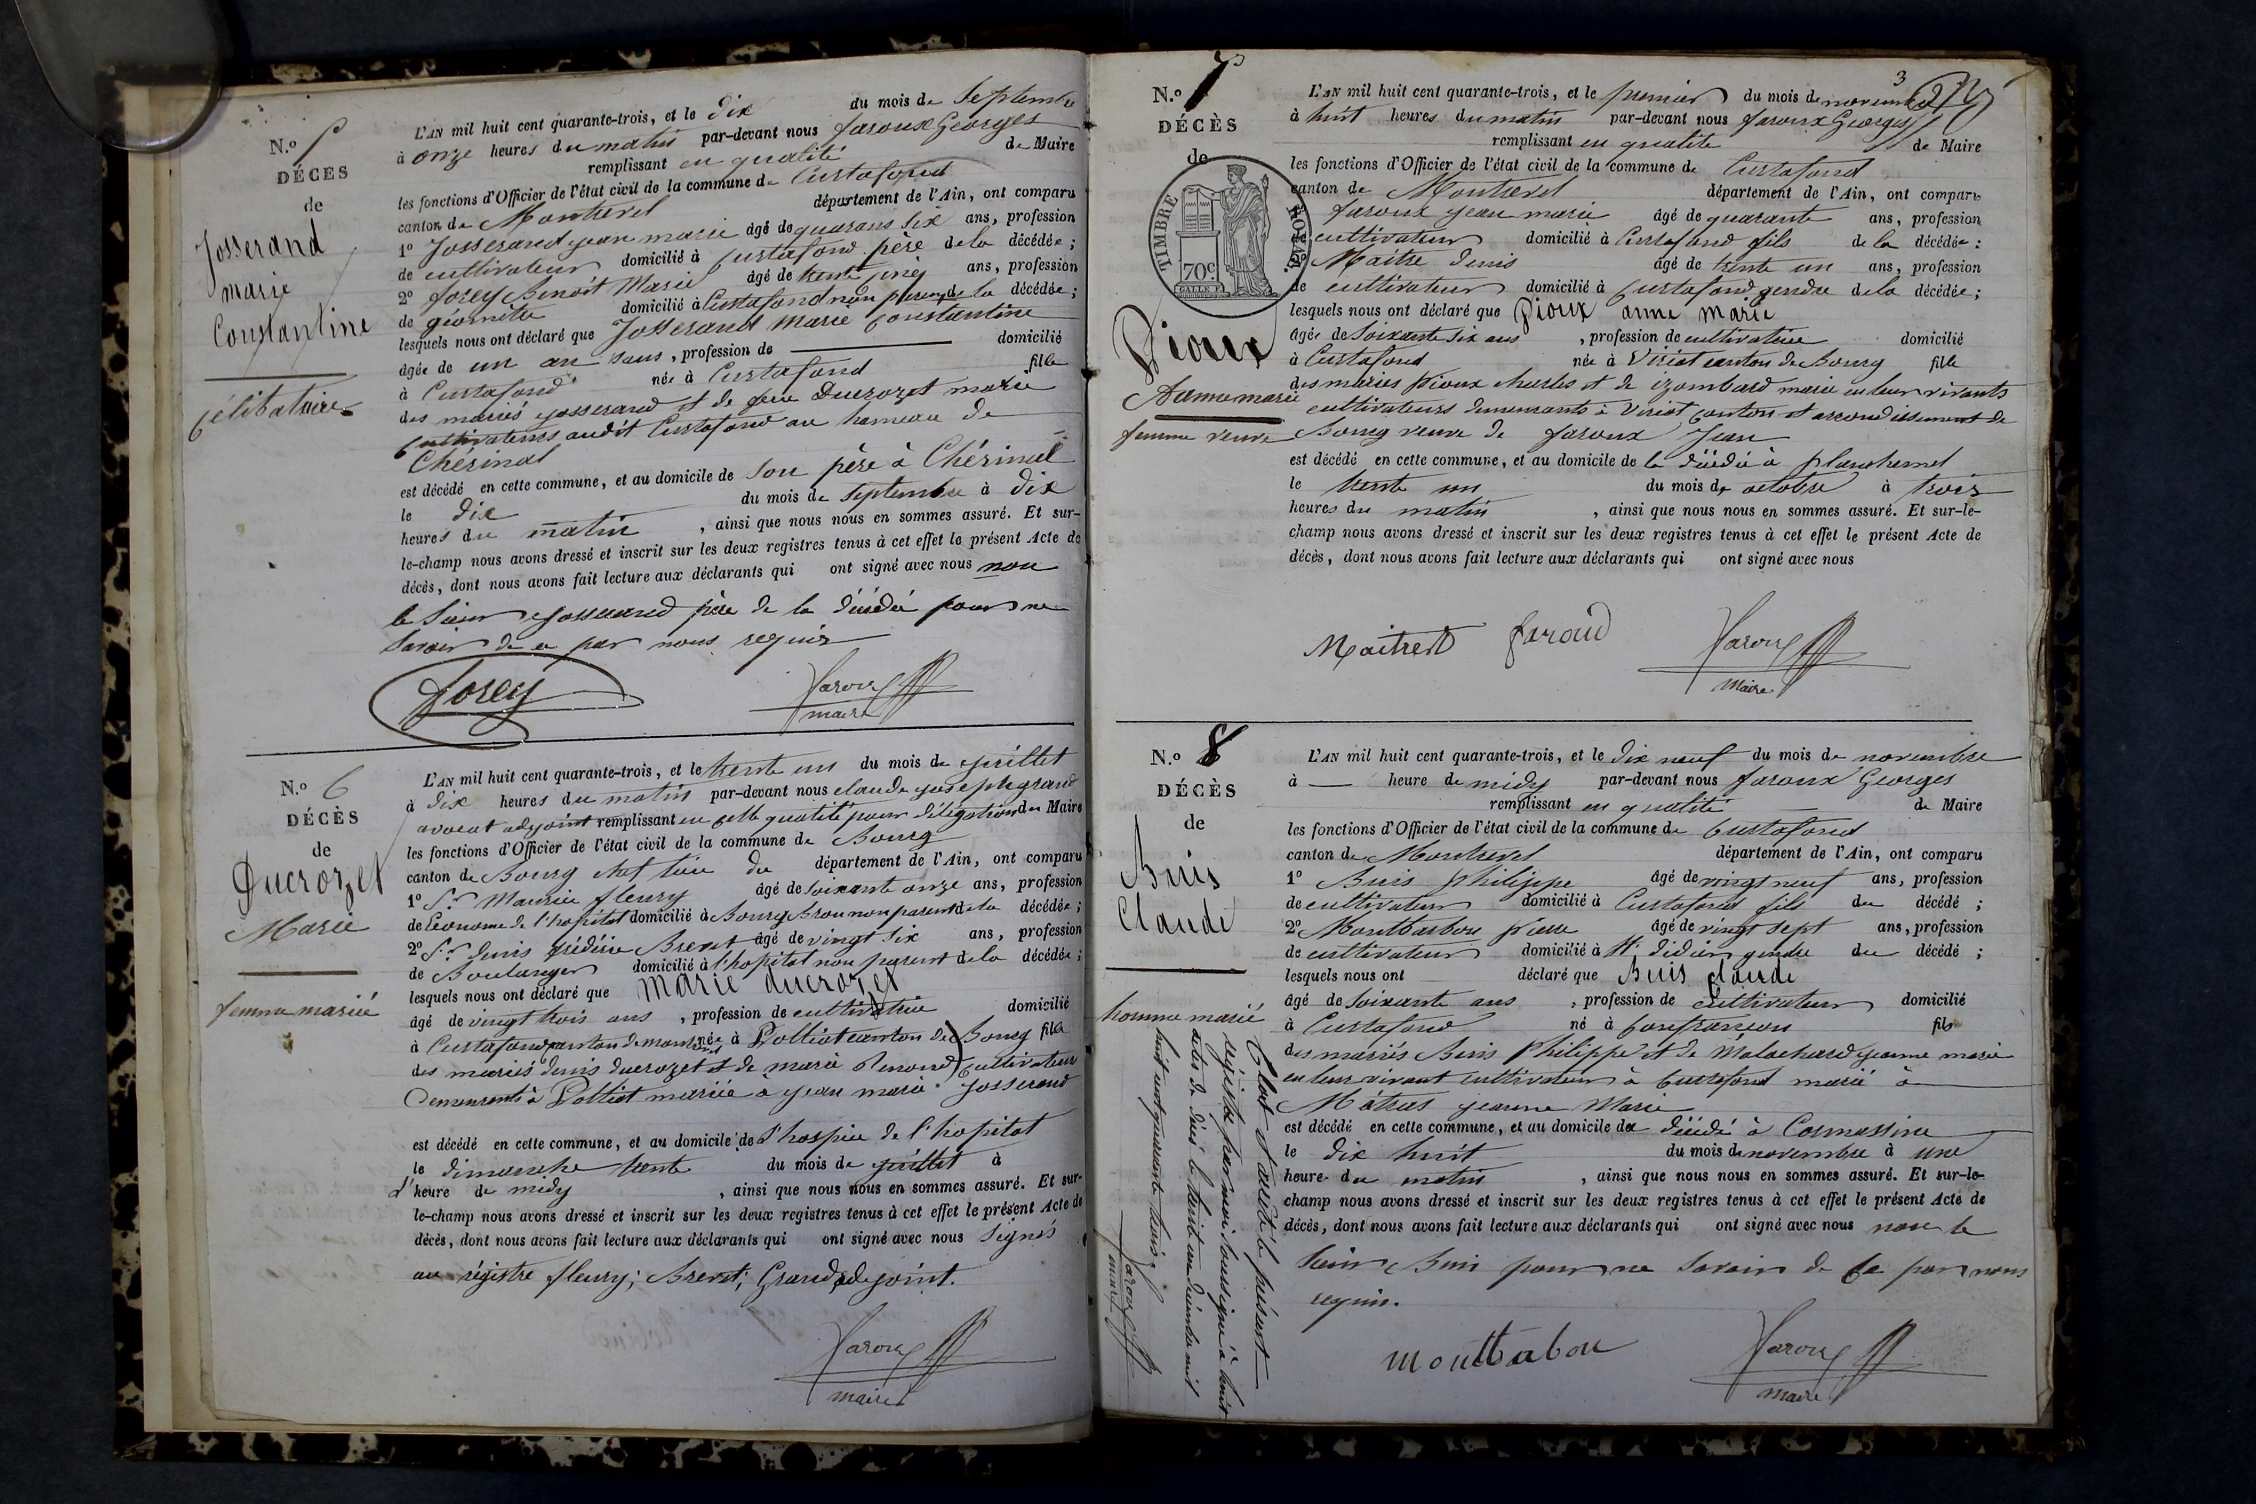 N.º 5
DÉCES
de
Josserand
marie
Constantine
célibataire
L'AN mil huit cent quarante-trois, et le dix du mois de Septembre
à onze heures du matin par-devant nous faroux Georges
remplissant en qualité de Maire
les fonctions d'Officier de l'état civil de la commune de Curtafond
canton de Montrevel département de l'Ain, ont comparu
1º Josserand jean marie âgé de quarans six ans, profession
de cultivateur domicilié à Curtafond père de la décédée;
2º forey Benoit Marie âgé de trente cinq ans, profession
de géomètre domicilié à Curtafond non parent de la décédée;
lesquels nous ont déclaré que Josserand marie constantine
âgée de un an sans, profession de domicilié
à Curtafond née à Curtafond fille
des mariés josserand et de feue Ducrozet marie
cultivateurs audit Curtafond au hameau de
Chérinal
est décédé en cette commune, et au domicile de son père à Chérinal
le dix du mois de septembre à dix
heures du matin, ainsi que nous nous en sommes assuré. Et sur-
le-champ nous avons dressé et inscrit sur les deux registres tenus à cet effet le présent Acte de
décès, dont nous avons fait lecture aux déclarants qui ont signé avec nous non
le Sieur josserand père de la décédée pour ne
savoir de ce par nous requis
forey
faroux
maire
N.º 6
DÉCÈS
de
Ducrozet
Marie
femme mariée
L'AN mil huit cent quarante-trois, et le trente un du mois de juillet
à dix heures du matin par-devant nous claude joseph grand
avocat adjoint remplissant en cette qualité pour délégation de Maire
les fonctions d'Officier de l'état civil de la commune de Bourg
canton de Bourg chef lieu du département de l'Ain, ont comparu
1º Sr. Maurice fleury âgé de soixante onze ans, profession
de Econome de l'hopital domicilié à Bourg Brou non parent de la décédée;
2º Sr. denis frédéric Brevet âgé de vingt six ans, profession
de Boulanger domicilié à l'hopital non parent de la décédée;
lesquels nous ont déclaré que marie ducrozet
âgé de vingt trois ans, profession de cultivatrice domicilié
à Curtafond canton de montrevel née à Polliat canton de Bourg fille
des mariés denis ducrozet et de marie cultivateurs
demeurants à Polliat mariée à jean marie Josserand
est décédé en cette commune, et au domicile de l'hospice de l'hopital
le dimanche trente du mois de juillet à
l'heure de midy, ainsi que nous nous en sommes assuré. Et sur-
le-champ nous avons dressé et inscrit sur les deux registres tenus à cet effet le présent Acte de
décès, dont nous avons fait lecture aux déclarants qui ont signé avec nous Signés
au régistre fleury; Brevet; Grand adjoint.
faroux
maire
3
N.º 7
DÉCÈS
de
TIMBRE ROYAL
70c.
Pioux
Anne marie
femme veuve
L'AN mil huit cent quarante-trois, et le premier du mois de novembre
à huit heures du matin par-devant nous faroux Georges
remplissant en qualité de Maire
les fonctions d'Officier de l'état civil de la commune de Curtafond
canton de Montrevel département de l'Ain, ont comparu
faroux jean marie âgé de quarante ans, profession
de cultivateur domicilié à Curtafond fils de la décédée:
Maitre denis âgé de trente un ans, profession
de cultivateur domicilié à Curtafond gendre de la décédée;
lesquels nous ont déclaré que Pioux anne marie
âgée de soixante six ans, profession de cultivatrice domicilié
à Curtafond née à Viriat canton de Bourg fille
des mariés pioux charles et de gombard marie en leur vivants
cultivateurs demeurants à Viriat canton et arrondissement de
Bourg veuve de faroux Jean
est décédé en cette commune, et au domicile de la décédée à
le trente un du mois de octobre à trois
heures du matin, ainsi que nous nous en sommes assuré. Et sur-le-
champ nous avons dressé et inscrit sur les deux registres tenus à cet effet le présent Acte de
décès, dont nous avons fait lecture aux déclarants qui ont signé avec nous
Maitre D faroud faroux
maire
N.º 8
DÉCÈS
de
Buis
Claude
homme marié
L'AN mil huit cent quarante-trois, et le dix neuf du mois de novembre
à heure de midy par-devant nous faroux Georges
remplissant en qualité de Maire
les fonctions d'Officier de l'état civil de la commune de Curtafond
canton de Montrevel département de l'Ain, ont comparu
1º Buis philippe âgé de vingt neuf ans, profession
de cultivateur domicilié à Curtafond fils du décédé;
2º Montbarbon pierre âgé de vingt sept ans, profession
de cultivateur domicilié à St. didier gendre du décédé;
lesquels nous ont déclaré que Buis claude
âgé de soixante ans, profession de cultivateur domicilié
à Curtafond né à Confrançon fils
des mariés Buis Philippe et de Malachard jeanne marie
en leur vivant cultivateurs à Curtafond marié à
jeanne Marie
est décédé en cette commune, et au domicile du décédé à Cormassine
le dix huit du mois de novembre à une
heure du matin, ainsi que nous nous en sommes assuré. Et sur-le-
champ nous avons dressé et inscrit sur les deux registres tenus à cet effet le présent Acte de
décès, dont nous avons fait lecture aux déclarants qui ont signé avec nous non le
sieur Buis pour ne savoir de ce par nous
requis.
faroux
maire
Clos et arrêté le présent
régistre par moi soussigné à huit
actes de décès le trente un décembre mil
huit cent quarante trois.
faroux
maire